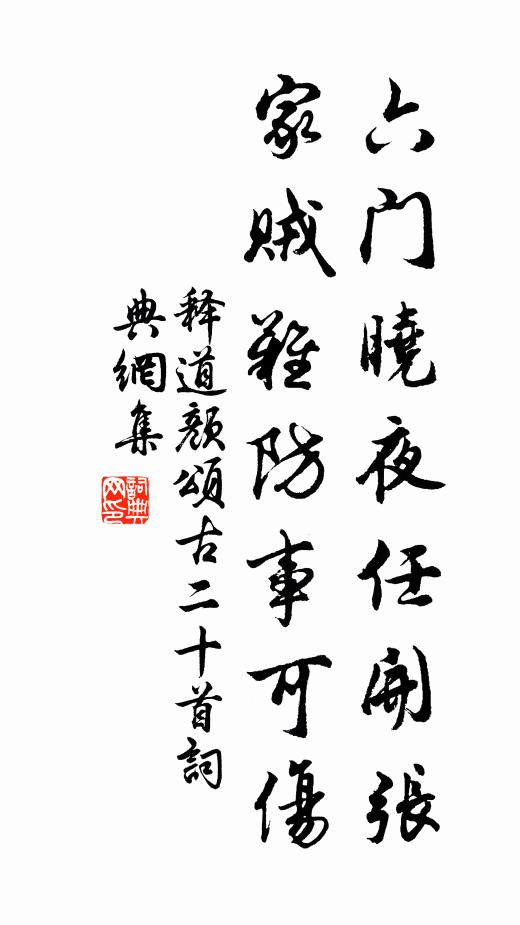 六门曉夜任開張
家賊難防事可傷
释道颜頌古二十首詞
典網集
詞典网印